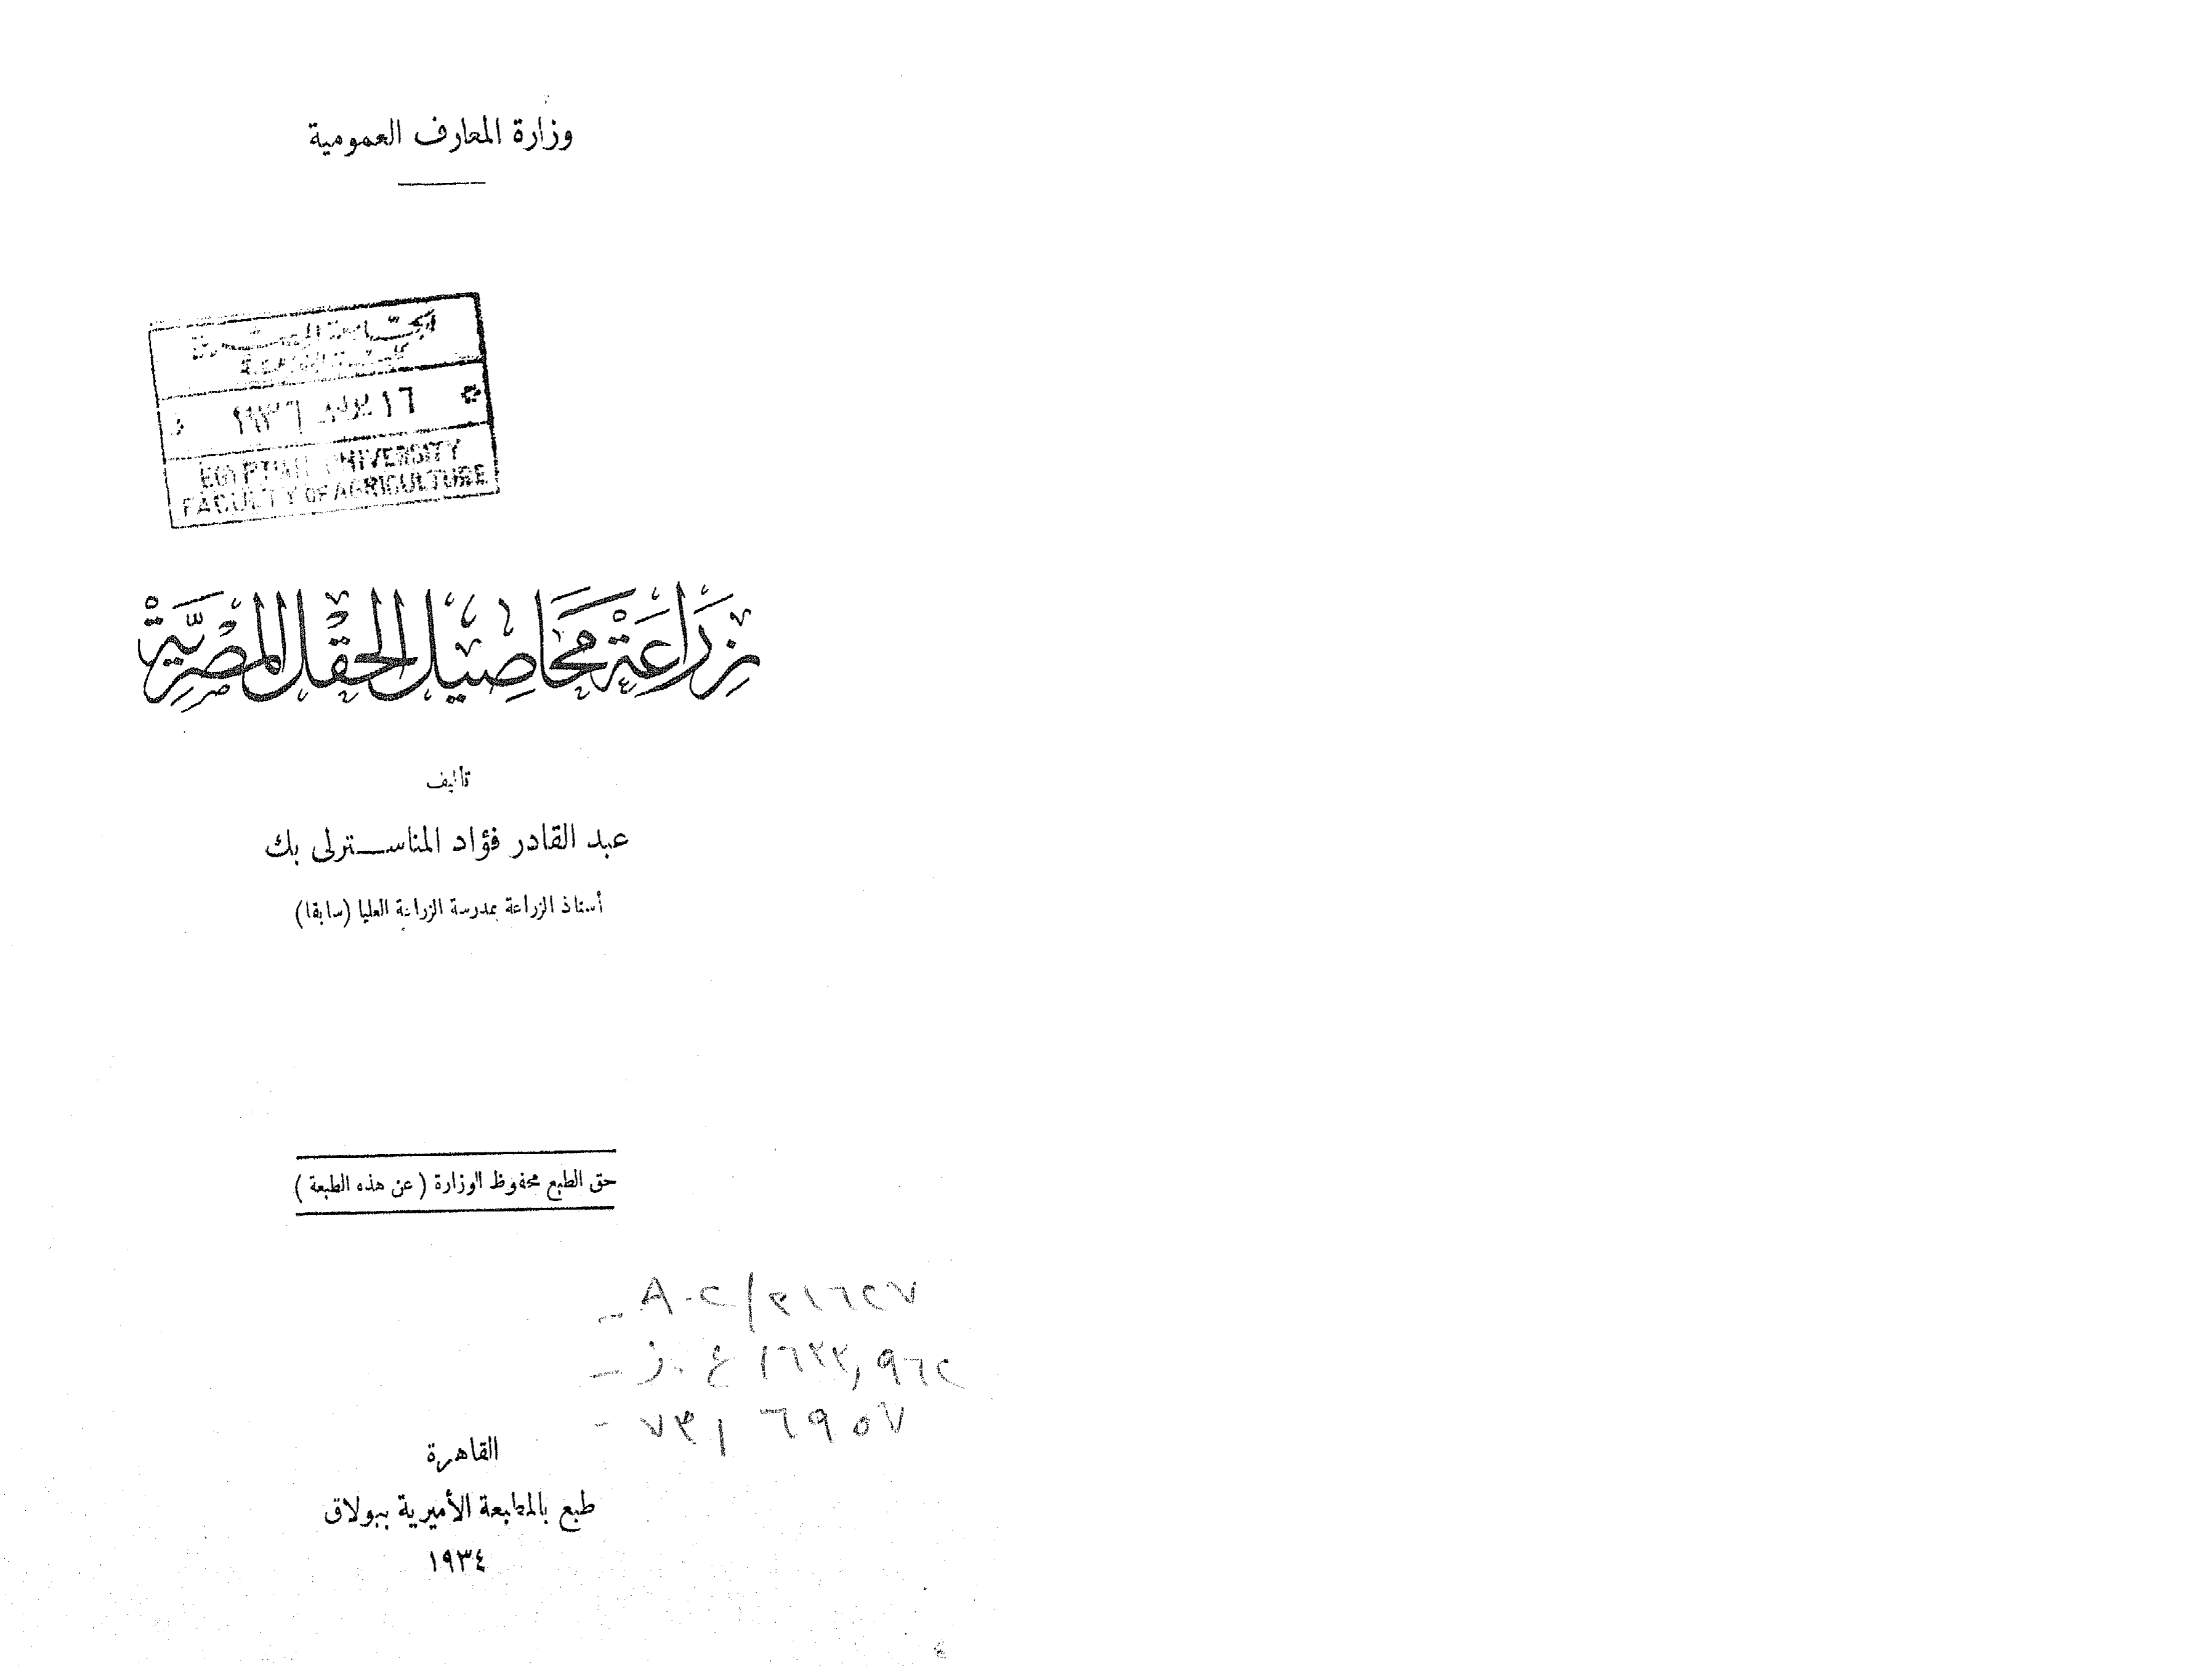 وزارة المعارف العمومية
الجامعة المصرية
كلية الزراعة
١٦ ١٩٣٦
EGYPTIAN UNIVERSITY
FACULTY OF AGRICULTURE
زِرَاعَةُ مَحَاصِيلِ الحَقْلِ المِصْرِيَّةِ
تأليف
عبد القادر فؤاد المناسترلى بك
أستاذ الزراعة بمدرسة الزراعة العليا (سابقا)
حق الطبع محفوظ للوزارة (عن هذه الطبعة)
القاهرة
طبع بالمطبعة الأميرية ببولاق
١٩٣٤